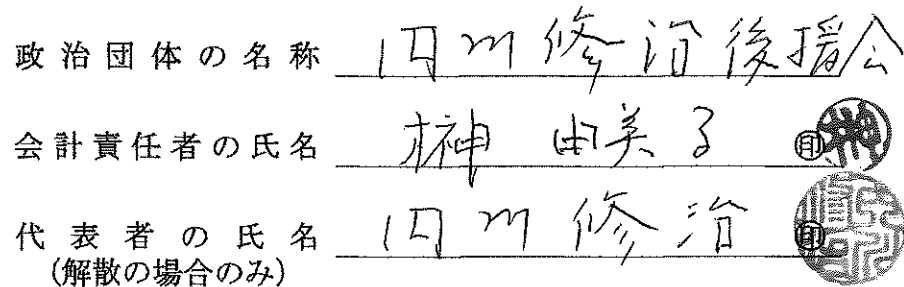 政治団体の名称 円川修治後援会
会計責任者の氏名 榊 由美子 印
代表者の氏名 円川修治 印
(解散の場合のみ)